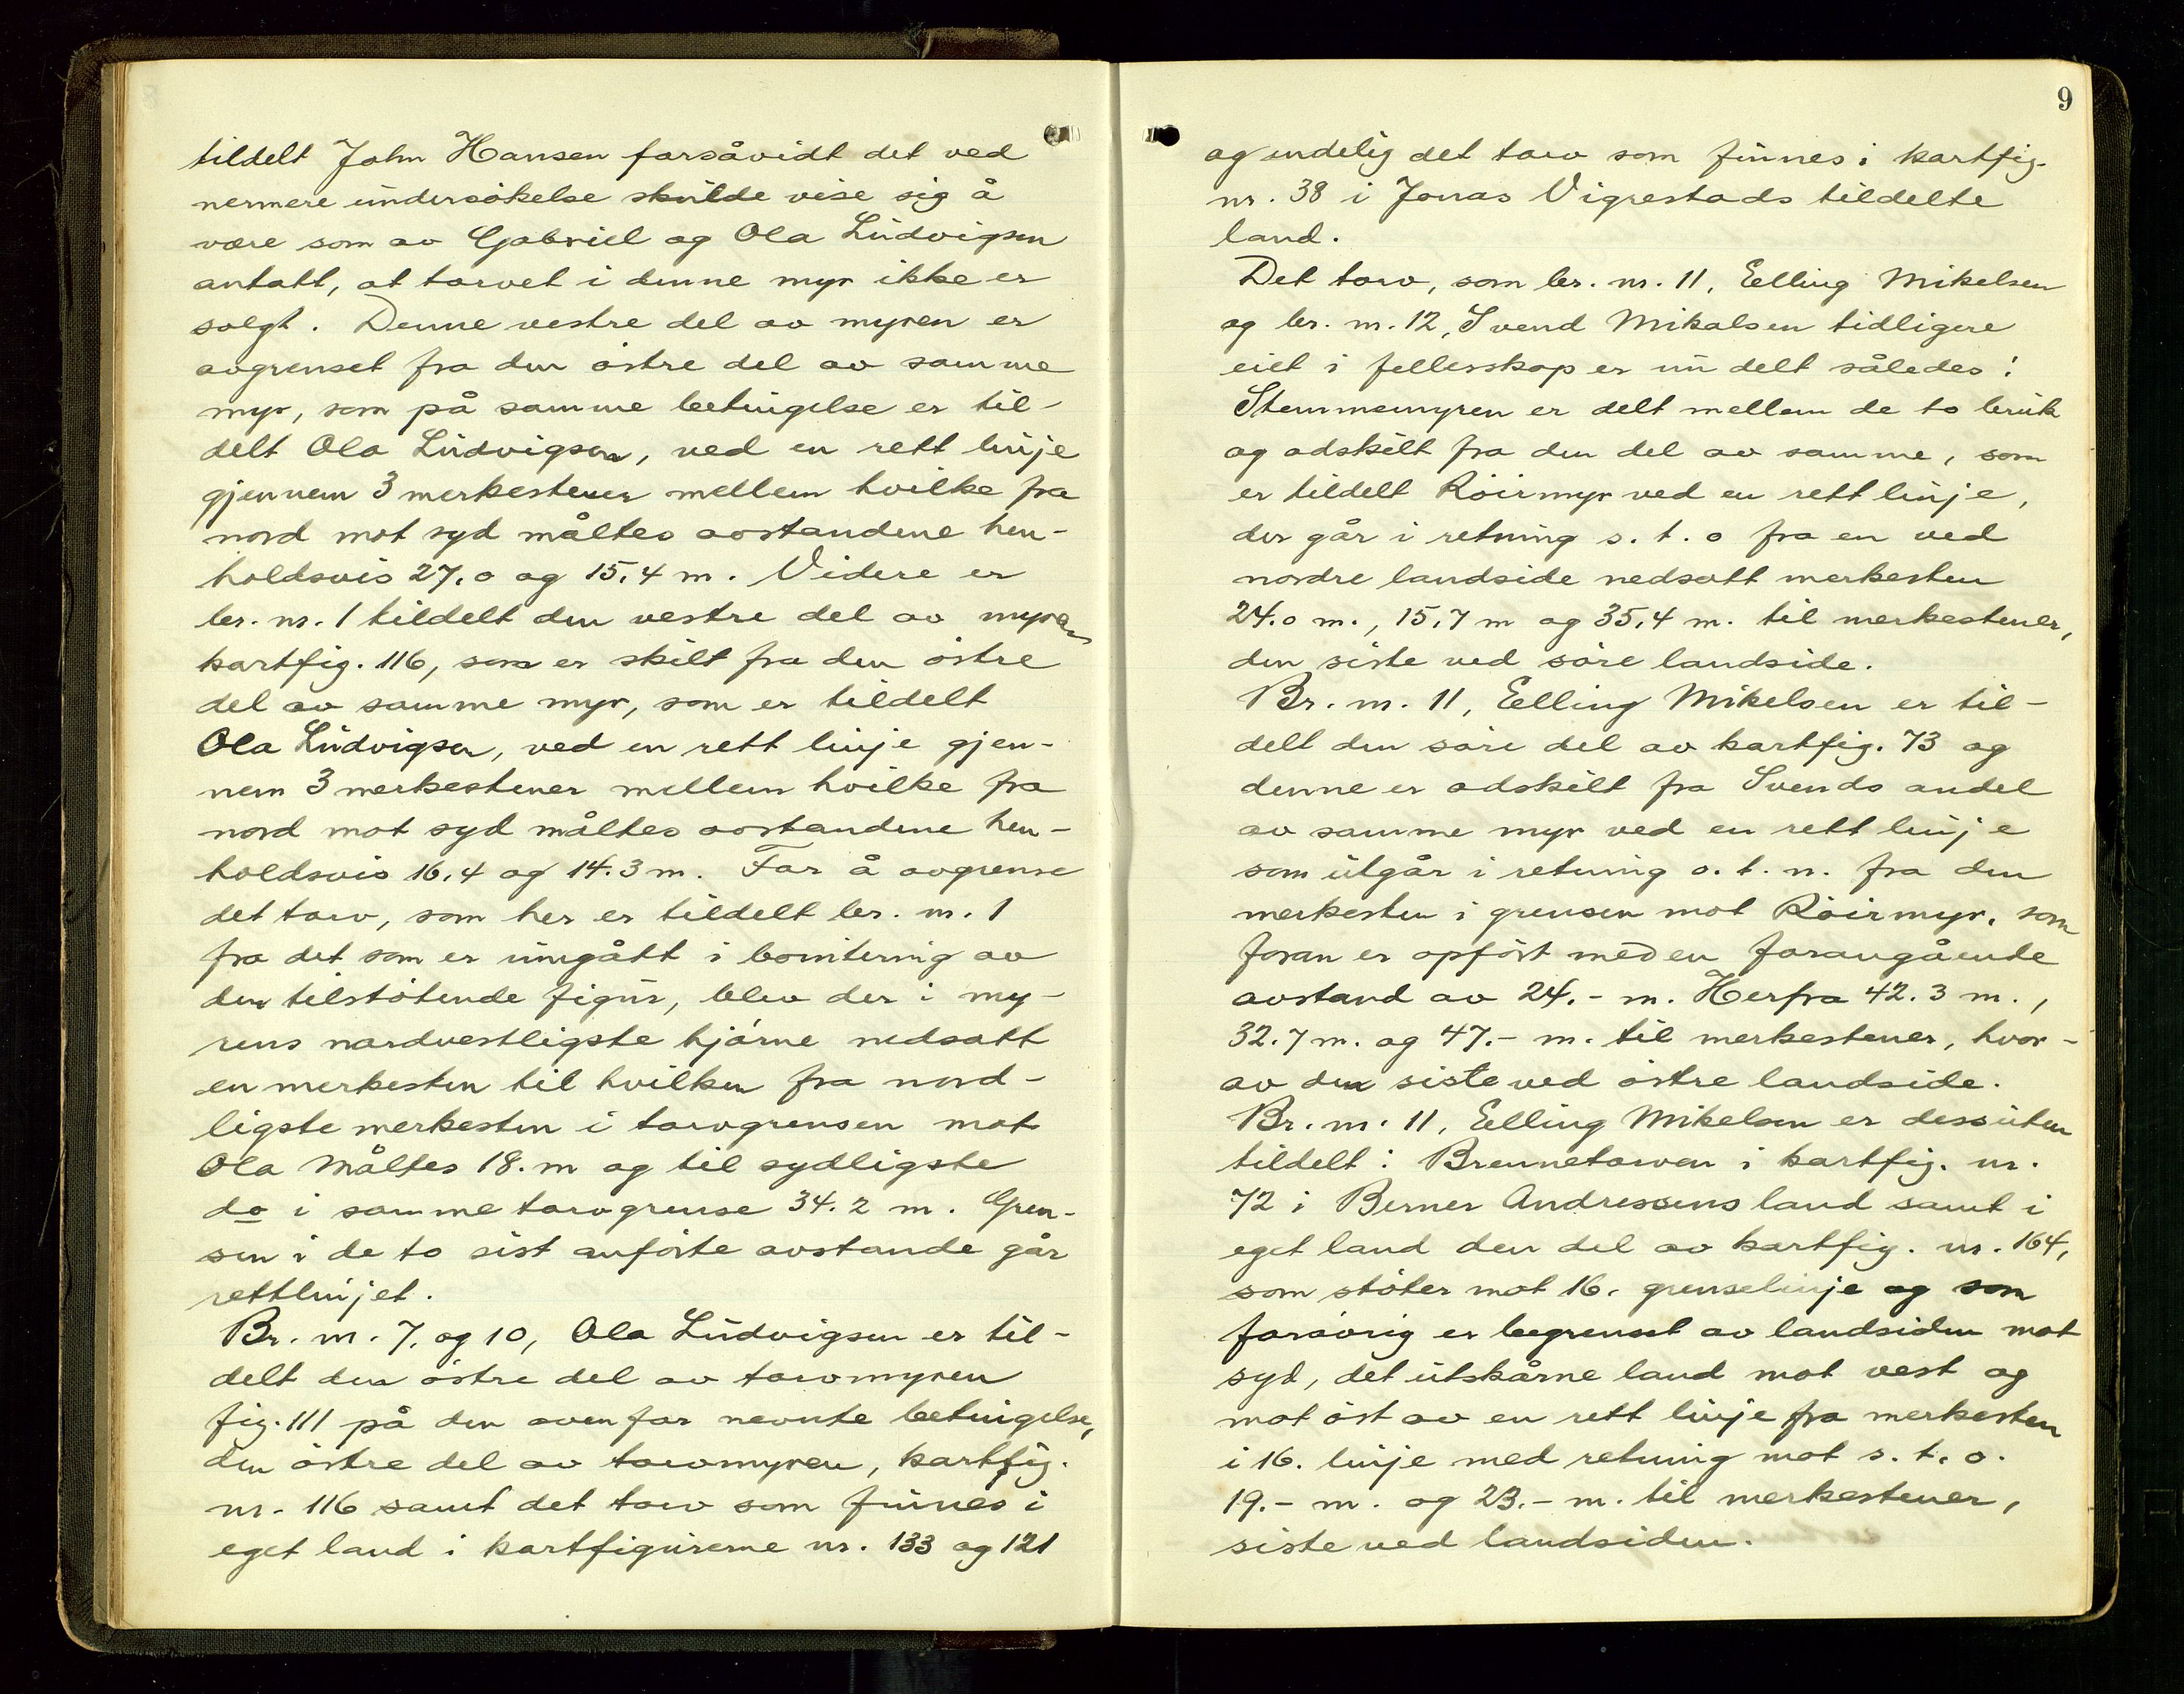 tildelt John Hansen forsåvidt det ved
nermere undersökelse skulde vise sig å
være som av Gabriel og Ola Ludvigsen
antatt, at torvet i denne myr ikke er
solgt. Denne vestre del av myren er
avgrenset fra den östre del av samme
myr, som på samme betingelse er til-
delt Ola Ludvigsen, ved en rett linje
gjennem 3 merkestener mellem hvilke fra
nord mot syd måltes avstandene hen-
holdsvis 27.0 og 15.4 m. Videre er
br. nr. 1 tildelt den vestre del av myren
kartfig. 116, som er skilt fra den östre
del av samme myr, som er tildelt
Ola Ludvigsen, ved en rett linje gjen-
nem 3 merkestener mellem hvilke fra
nord mot syd måltes avstandene hen-
holdsvis 16.4 og 14.3 m. For å avgrense
det torv, som her er tildelt br. nr. 1
fra det som er ungått i bonitering av
den tilstötende figur, blev der i my-
rens nordvestligste hjörne nedsatt
en merkesten til hvilken fra nord-
ligste merkesten i torvgrensen mot
Ola måltes 18. m og til sydligste
do i samme torvgrense 34.2 m. Gren-
sen i de to sist anförte avstande går
rettlinjet.
Br. nr. 7. og 10, Ola Ludvigsen er til-
delt den östre del av torvmyren
fig. 111 på den ovenfor nevnte betingelse,
den östre del av torvmyren, kartfig.
nr. 116 samt det torv som finnes i
eget land i kartfigurerne nr. 133 og 121
9
og endelig det torv som finnes i kartfig.
nr. 38 i Jonas Vigrestads tildelte
land.
Det torv, som br. nr. 11, Elling Mikelsen
og br. nr. 12, Svend Mikalsen tidligere
eiet i fellesskap er nu delt således:
Stemmemyren er delt mellem de to bruk
og adskilt fra den del av samme, som
er tildelt Röirmyr ved en rett linje,
der går i retning s. t. o fra en ved
nordre landside nedsatt merkesten
24.0 m., 15.7 m og 35.4 m. til merkestener,
den siste ved söre landside.
Br. nr. 11, Elling Mikelsen er til-
delt den söre del av kartfig. 73 og
denne er adskilt fra Svends andel
av samme myr ved en rett linje
som utgår i retning o. t. n. fra den
merkesten i grensen mot Röirmyr, som
foran er opfört med en forangående
avstand av 24.- m. Herfra 42.3 m.,
32.7 m. og 47.- m. til merkestener, hvor-
av den siste ved östre landside.
Br. nr. 11, Elling Mikelsen er dessuten
tildelt: Brennetorven i kartfig. nr.
72 i Berner Andressens land samt i
eget land den del av kartfig. nr. 164,
som stöter mot 16. grenselinje og som
forövrig er begrenset av landsiden mot
syd, det utskårne land mot vest og
mot öst av en rett linje fra merkesten
i 16. linje med retning mot s. t. o.
19.- m. og 23.- m. til merkestener,
siste ved landsiden.